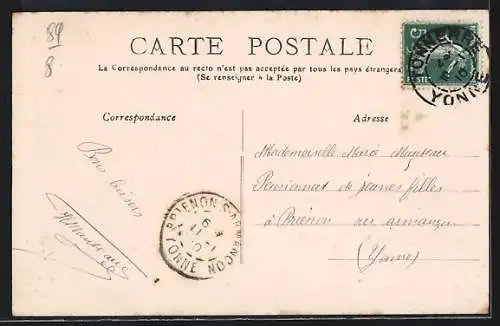 89
8
CARTE POSTALE
La Correspondance au recto n'est pas acceptée par tous les pays étrangers
(Se renseigner à la Poste)
Correspondance
Adresse
Bons baisers
Mademoiselle
Pensionnat de jeunes filles
à Brienon sur armançon
(Yonne)
BRIENON S ARMANÇON
YONNE
TONNERRE
YONNE
5
POSTES